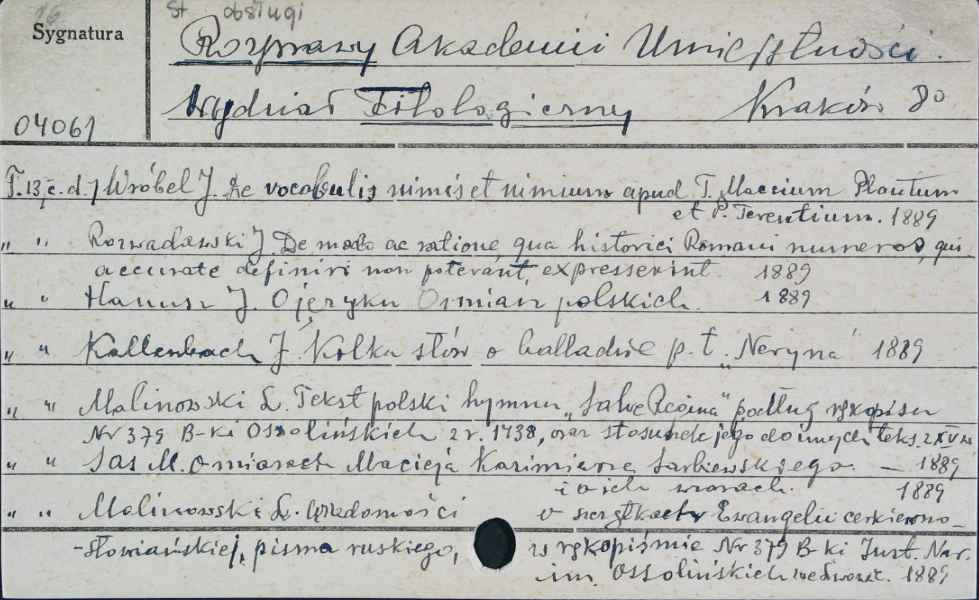 St obsługi
Sygnatura
Rozprawy Akademii Umiejętności.
Wydział Filologiczny Kraków 8o
04061
T. 13 c. d. Wróbel J. De vocabulis nimis et nimium apud T. Maccium Plautum
et P. Terentium. 1889
„ „ Rozwadowski J De modo ac ratione qua historici Romani numeros, qui
accurate definiri non poterant, expresserint. 1889
„ „ Hanusz J. O języku Ormian polskich. 1889
„ „ Kallenbach J. Kilka słów o balladzie p. t. „Neryna" 1889
„ „ Malinowski L. Tekst polski hymnu „Salve Regina" podług rękopisu
Nr 379 B-ki Ossolińskich z r. 1438, oraz stosunek jego do innych teks. z XV w.
„ „ Sas M. O miarach Macieja Kazimierza Sarbiewskiego. — 1889
i o ich wzorach. 1889
„ „ Malinowski L. Wiadomości o resztkach Ewangelii cerkiewno-
-słowiańskiej, pisma ruskiego, w rękopiśmie Nr 379 B-ki Inst. Nar.
im. Ossolińskich we Lwowie. 1889